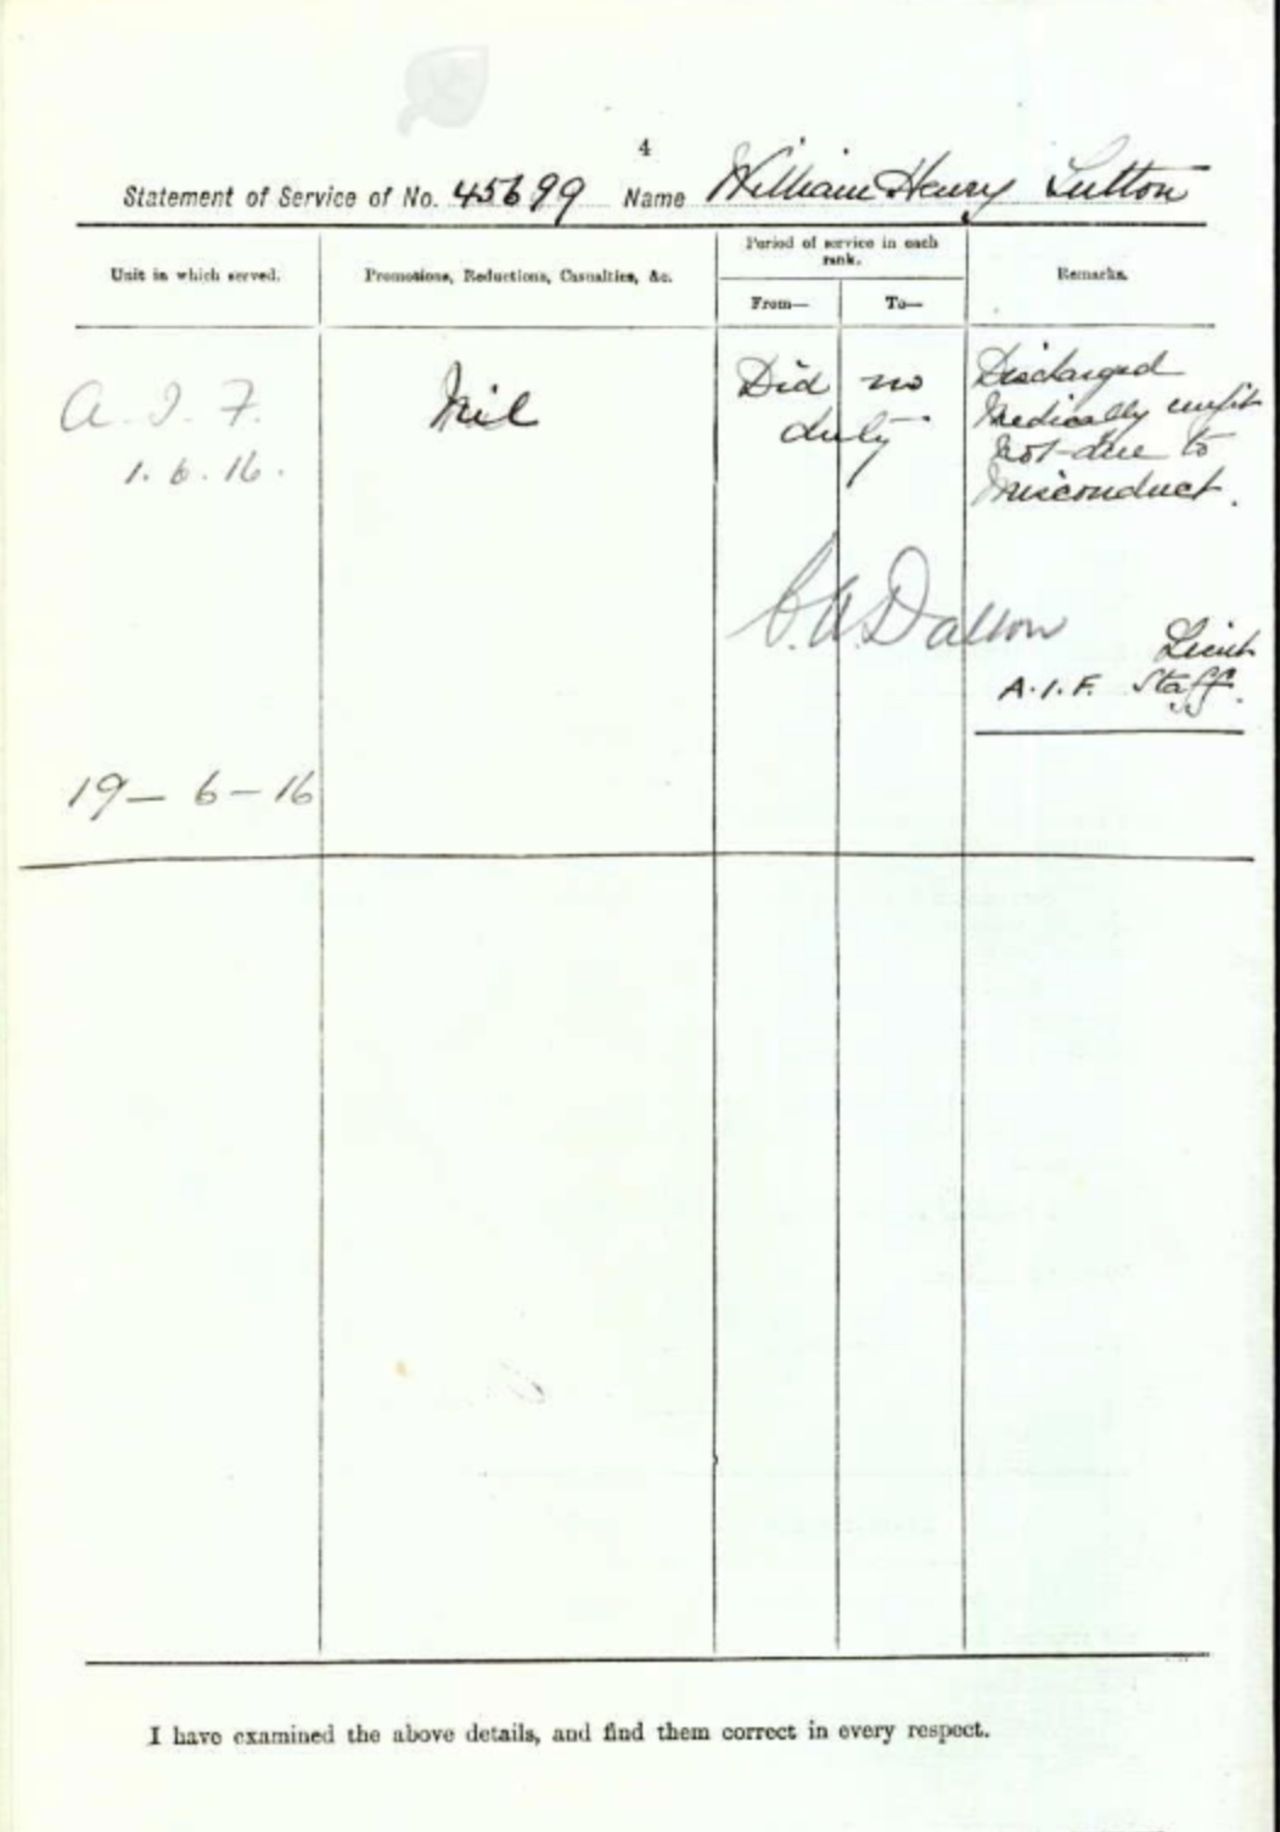 4
Statement of Service of No. 45699 Name William Henry Sutton
Unit in which served.
Promotions, Reductions, Casualties, &c.
Period of service in each
rank.
From—
To—
Remarks.
A. I. F.
1. 6. 16.
Nil
Did no
duty
Discharged
Medically unfit
Not due to
Misconduct.
C.W. Dalton
Lieut
A.I.F. Staff.
19 — 6 — 16
I have examined the above details, and find them correct in every respect.